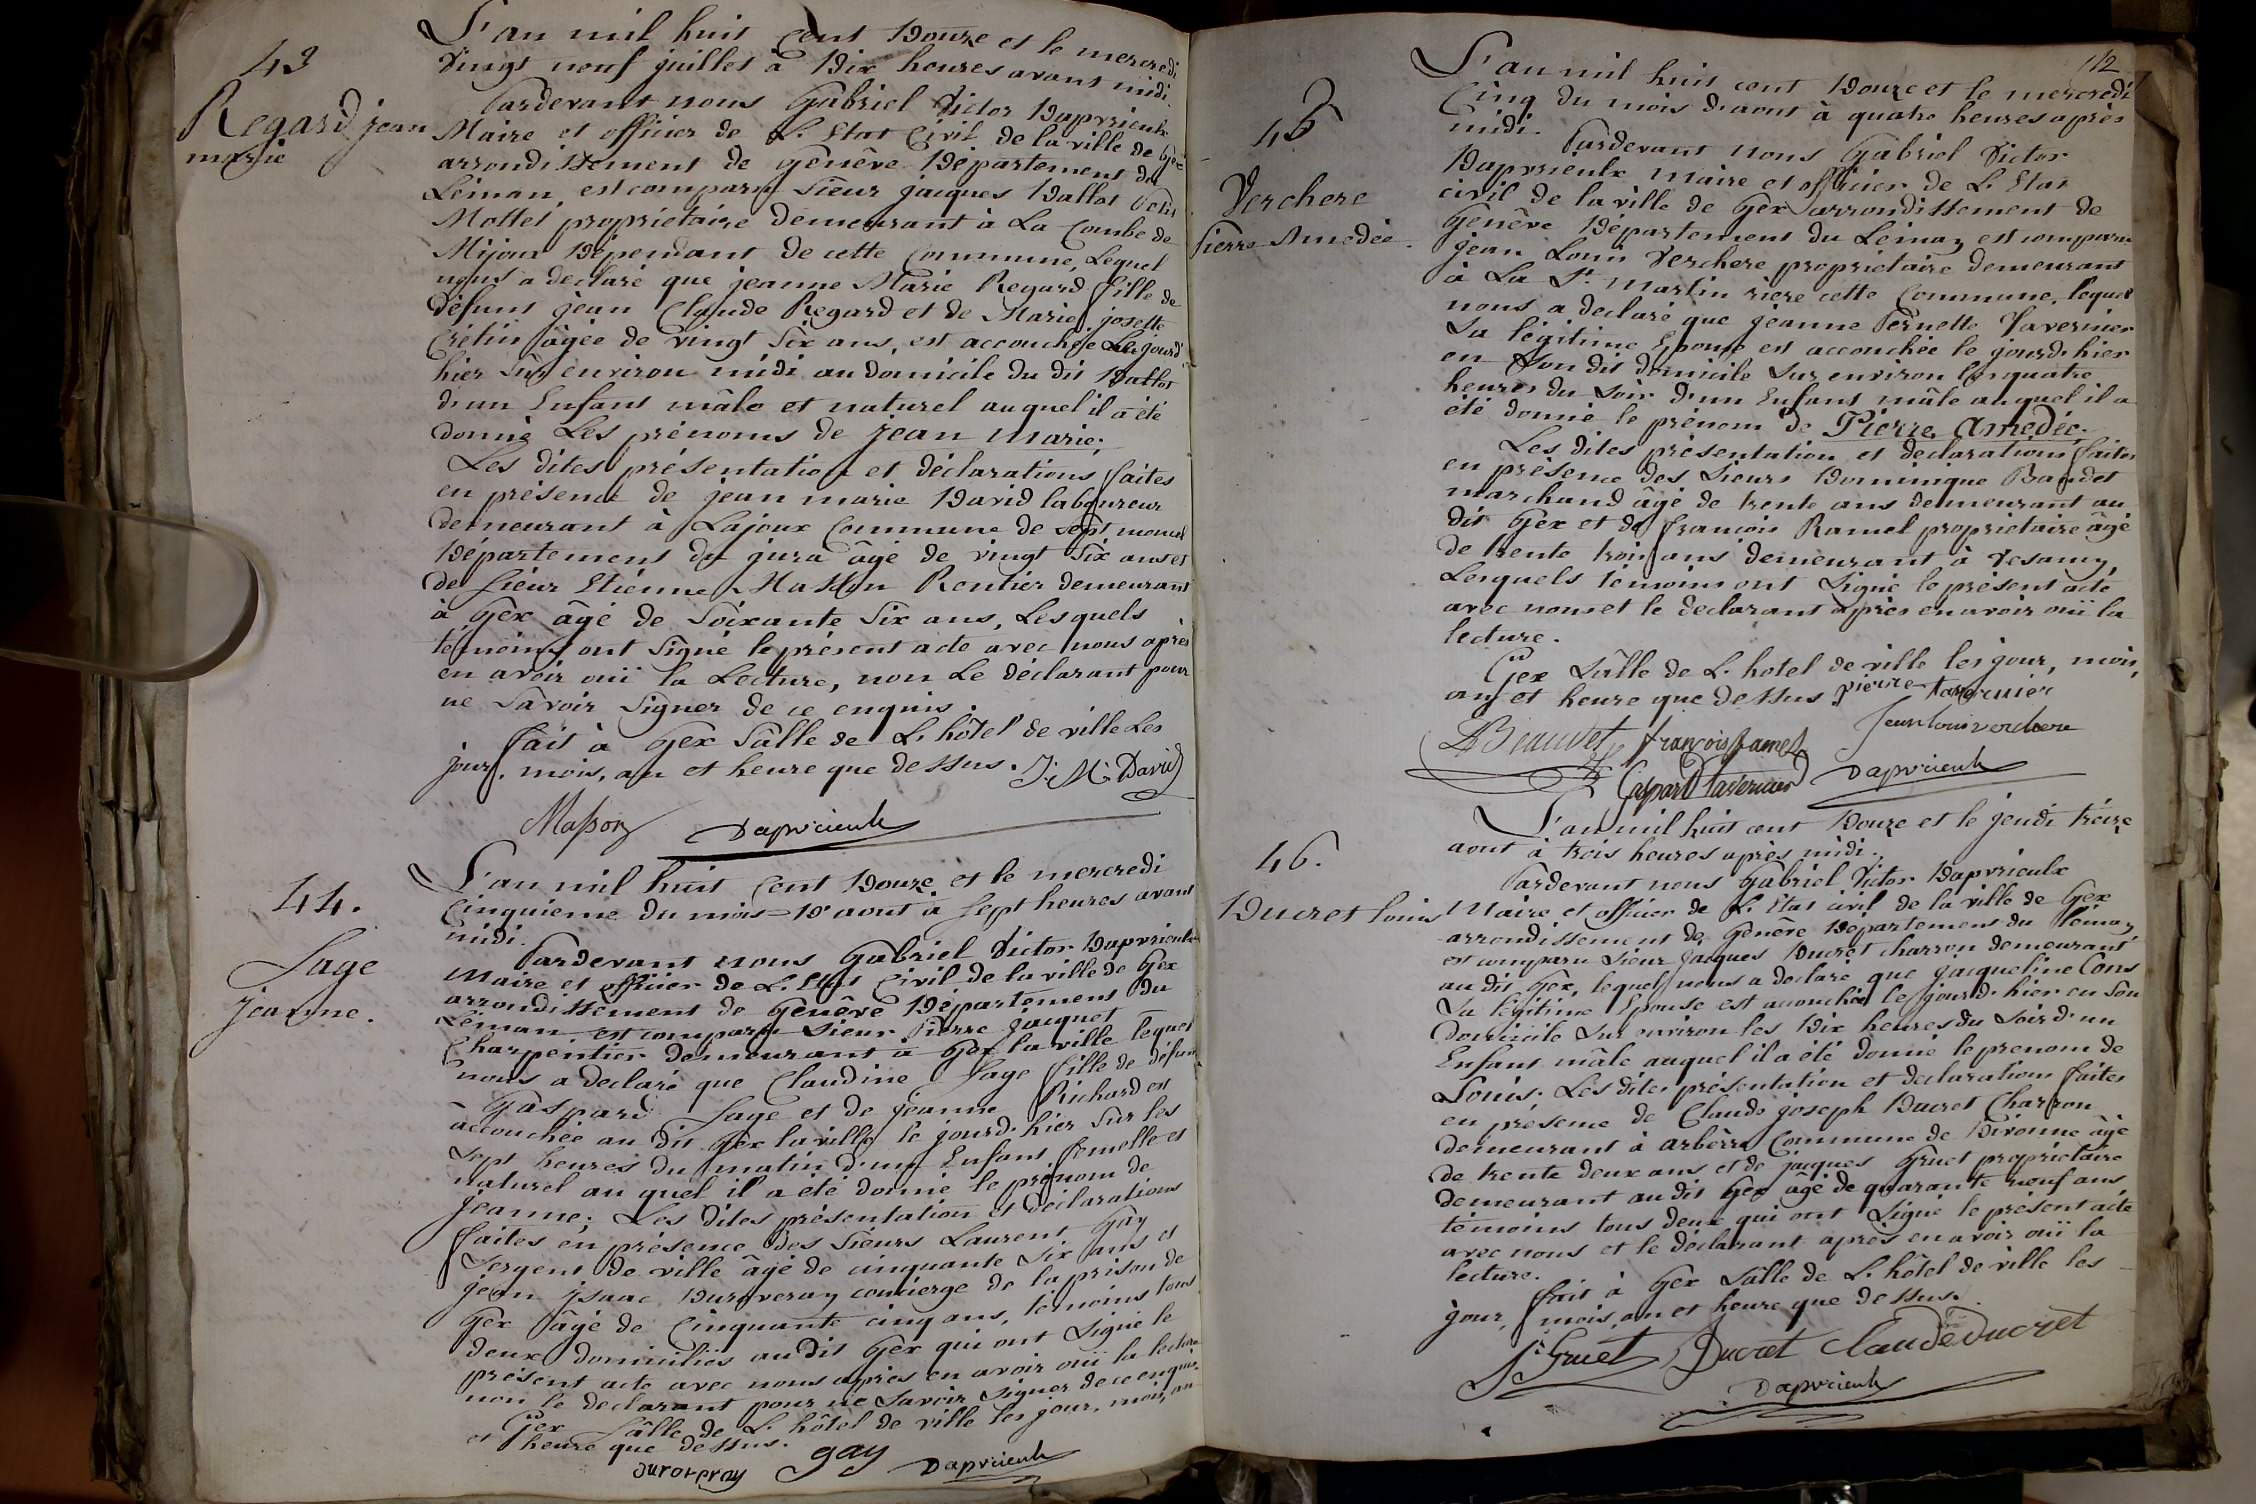 43
Regard jean
marie
L'an mil huit cent Douze et le mercredi
Vingt neuf juillet à Dix heures avant midi.
Pardevant nous Gabriel Victor Dapvrieulx
Maire et officier de L'Etat Civil de la ville de Gex
arrondissement de Genêve Département du
Léman, est comparu Sieur jacques Ballot
Mollet propriétaire demeurant à La Combe de
Mijoux Dépendant de cette Commune, Lequel
nous a déclaré que jeanne Marie Regard fille de
défunt jean Claude Regard et de Marie josette
Crétin âgée de vingt Six ans, est accouchée Le jourd'
hier Sur environ midi au domicile du dit Ballot
d'un Enfant mâle et naturel auquel il a été
donné Les prénoms de jean marie;
Les dites présentation et déclarations faites
en présence de jean marie David laboureur
demeurant à Lajoux Commune de Sept moncel
Département du jura âgé de vingt Six ans et
de Sieur Etienne Masson Rentier demeurant
à Gex âgé de Soixante Six ans, Lesquels
témoins ont Signé le présent acte avec nous après
en avoir ouï la Lecture, non Le déclarant pour
ne Savoir Signer de ce enquis.
fait à Gex Sâlle de L'hôtel de ville Les
jour, mois, an et heure que dessus. J. M. David
Masson Dapvrieulx
44.
Sage
jeanne.
L'an mil huit Cent Douze et le mercredi
Cinquieme du mois D'aout à Sept heures avant
midi.
Pardevant nous Gabriel Victor Dapvrieulx
Maire et officier de L'Etat Civil de la ville de Gex
arrondissement de Genêve Département du
Léman est comparu Sieur Pierre jacquet
Charpentier demeurant à Gex la ville lequel
nous a declaré que Claudine Sage fille de défunt
Gaspard Sage et de jeanne Richard est
accouchée au dit Gex la ville le jourd'hier Sur les
Sept heures du matin d'un Enfant femelle et
naturel au quel il a été donné le prénom de
jeanne; Les dites présentation et déclarations
faites en présence des Sieurs Laurent Gay
Sergent de ville âgé de cinquante Six ans et
jean ysaac Duroveray concierge de la prison de
Gex âgé de Cinquante cinq ans, témoins tous
deux domiciliés au dit Gex qui ont Signé le
présent acte avec nous après en avoir ouï la lecture
non le declarant pour ne Savoir Signer de ce enquis.
Gex Sâlle de L'hôtel de ville les jour, mois, an
et heure que dessus.
duroveray gay Dapvrieulx
112
45
Verchere
Pierre Amedée.
L'an mil huit cent Douze et le mercredi
Cinq du mois d'aout à quatre heures après
midi.
Pardevant nous Gabriel Victor
Dapvrieulx Maire et officier de L'Etat
civil de la ville de Gex arrondissement de
Genêve Département du Léman est comparu
jean Louis Verchere propriétaire demeurant
à La St. Martin riere cette Commune, lequel
nous a declaré que jeanne Pernette Tavernier
Sa légitime Epouse est accouchée le jourd'hier
en Son dit domicile Sur environ les quatre
heures du Soir d'un Enfant mâle auquel il a
été donné le prénom de Pierre Amedée.
Les dites présentation et déclarations faites
en présence des Sieurs Dominique Baudet
marchand âgé de trente ans demeurant au
dit Gex et de françois Ramel propriétaire âgé
de trente trois ans demeurant à Vesancy,
Lesquels témoins ont Signé le présent acte
avec nous et le declarant après en avoir ouï la
lecture.
Gex Sâlle de L'hotel de ville les jour, mois,
an et heure que dessus. pierre tavernier
jean louis verchere
Beaudet françois Ramel
Gaspard Tavernier Dapvrieulx
46.
Ducret louis
L'an mil huit cent Douze et le jeudi treize
aout à trois heures après midi.
Pardevant nous Gabriel Victor Dapvrieulx
Maire et officier de L'Etat civil de la ville de Gex
arrondissement de Genêve Département du Léman
est comparu Sieur Jacques Ducret charron demeurant
au dit Gex, lequel nous a declaré que jacqueline Cons
Sa légitime Epouse est accouchée le jourd'hier en Son
Domicile Sur environ les Dix heures du Soir d'un
Enfant mâle auquel il a été donné le prenom de
Louis. Les dites présentation et declarations faites
en présence de Claude joseph Ducret Charron
demeurant à arbère Commune de Divonne âgé
de trente deux ans et de jacques Gruet propriétaire
demeurant au dit Gex âgé de quarante neuf ans
témoins tous deux qui ont Signé le présent acte
avec nous et le déclarant après en avoir ouï la
lecture.
fait à Gex Sâlle de L'hôtel de ville les
jour, mois, an et heure que dessus.
Gruet Ducret Claude Ducret
Dapvrieulx